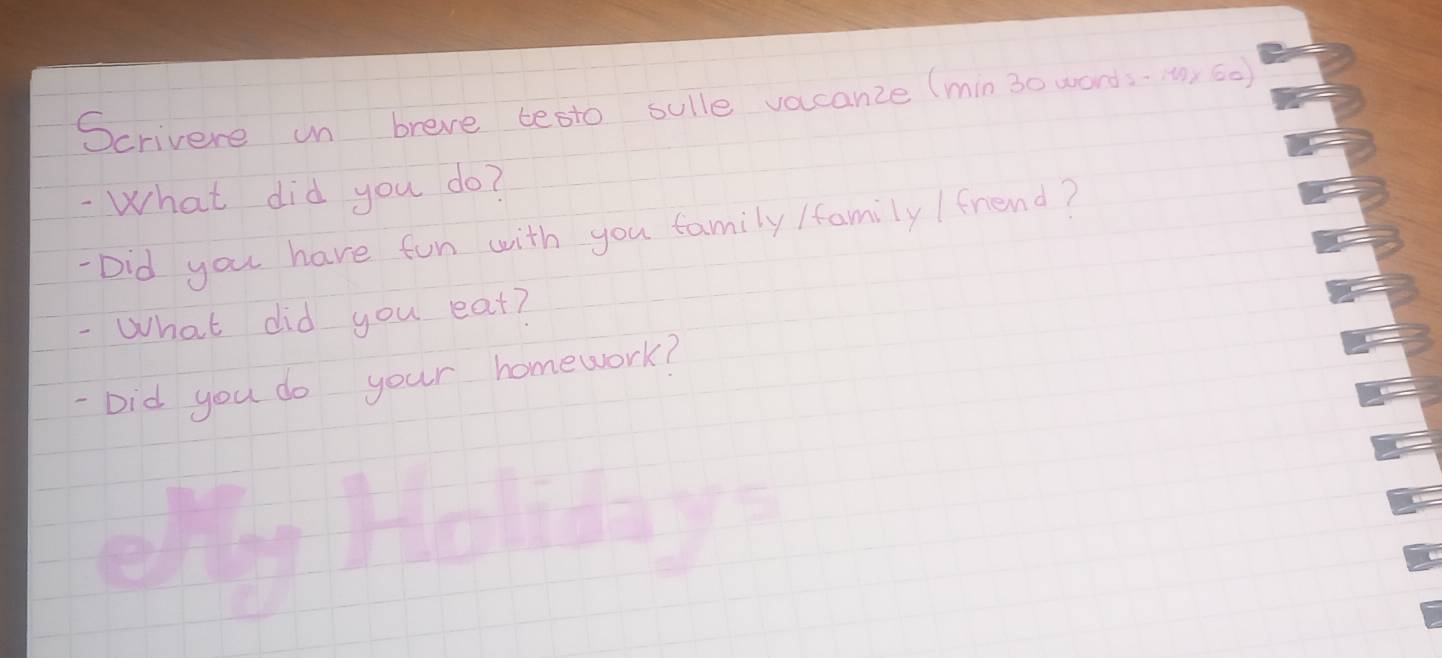 Scrivere un breve testo sulle vacanze (min 30 words - max 60)
- What did you do?
- Did you have fun with you family/family/friend?
- What did you eat?
- Did you do your homework?
My Holidays